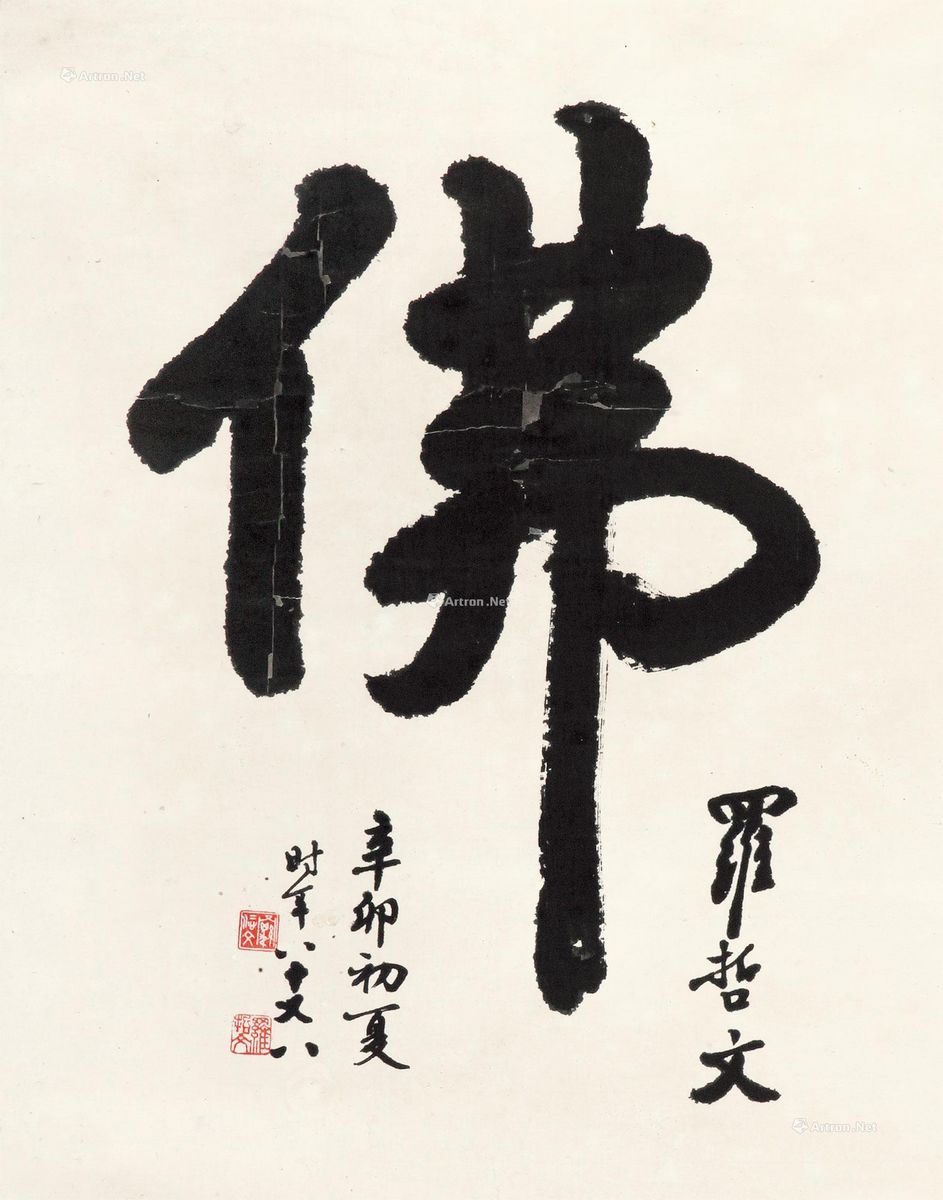 佛
羅哲文
辛卯初夏
时年八十又八
羅哲文
Artron.Net
Artron.Net
Artron.Net